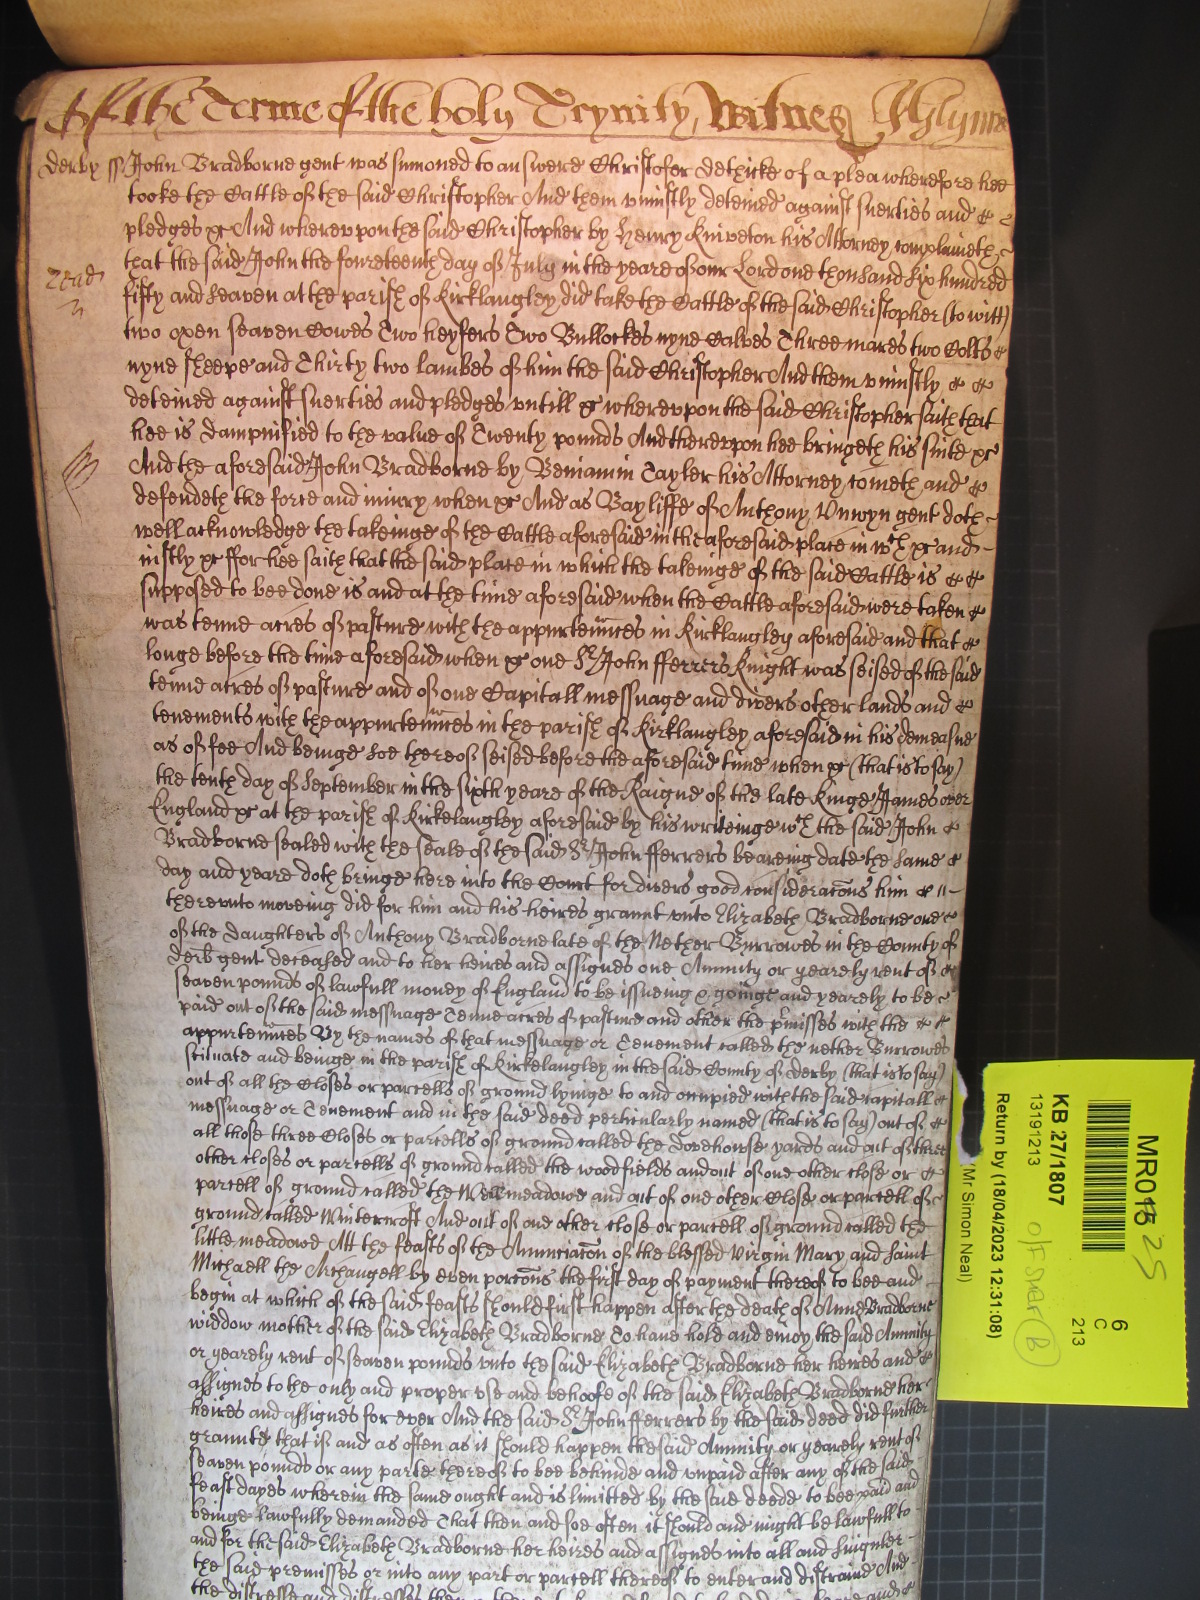 Of the Terme of the holy Trynity, Witnes J Glynne
Derby ss John Bradborne gent was sumoned to answere Christofer Dethicke of a plea wherefore hee
tooke the Cattle of the said Christopher And them uniustly deteined against suerties and
pledges &c And whereupon the said Christopher by Henry Kniveton his Attorney complaineth
that the said John the foureteenth day of July in the yeare of our Lord one thousand six hundred
fifty and seaven at the parish of Kirklangley did take the Cattle of the said Christopher (to witt)
two oxen seaven Cowes Two heyfers Two Bullockes nyne Calves Three mares two Colts
nyne sheepe and Thirty two lambes of him the said Christopher And them uniustly
deteined against suerties and pledges untill &c whereupon the said Christopher saith that
hee is dampnified to the value of Twenty pounds And thereupon hee bringeth his suite &c
And the aforesaid John Bradborne by Beniamin Tayler his Attorney cometh and
defendeth the force and iniury when &c And as Bayliffe of Anthony Unwyn gent doth
well acknowledge the takeinge of the Cattle aforesaid in the aforesaid place in wch &c and
iustly &c ffor hee saith that the said place in which the takeinge of the said Cattle is
supposed to bee done is and at the time aforesaid when the Cattle aforesaid were taken
was tenne acres of pasture with the appurtennces in Kirklangley aforesaid and that
longe before the time aforesaid when &c one Sr John fferrers Knight was seised of the said
tenne acres of pasture and of one Capitall messuage and divers other lands and
tenements with the appurtennces in the parish of Kirklangley aforesaid in his demeasne
as of fee And beinge soe thereof seised before the aforesaid time when &c (that is to say)
the tenth day of September in the sixth yeare of the Raigne of the late Kinge James over
England &c at the parish of Kirkelangley aforesaid by his writeinge wch the said John
Bradborne sealed with the seale of the said Sr John fferrers beareing date the same
day and yeare doth bringe here into the Court for divers good consideracons him
thereunto moveing did for him and his heires graunt unto Elizabeth Bradborne one
of the daughters of Anthony Bradborne late of the Nether Burrowes in the County of
Derb gent deceased and to her heires and assignes one Annuity or yearely rent of
seaven pounds of lawfull money of England to be issueing & goinge and yearely to be
paid out of the said messuage Tenne acres of pasture and other the p'misses with the
appurtennces By the names of that messuage or Tenement called the nether Burrowes
scituate and beinge in the parish of Kirkelangley in the said County of Derby (that is to say)
out of all the Closes or parcells of ground lyinge to and occupied with the said capitall
messuage or Tenement and in the said deed perticularly named (that is to say) out of
all those three Closes or parcells of ground called the Dovehouse yards and out of three
other closes or parcells of ground called the woodfields and out of one other close or
parcell of ground called the meadowe and out of one other Close or parcell of
ground called Wintercroft And out of one other close or parcell of ground called the
little meadowe Att the feasts of the Annunciacon of the blessed Virgin Mary and Saint
Michaell the Archangell by even porcons the first day of payment thereof to bee and
begin at which of the said feasts should first happen after the death of Anne Bradborne
widdow mother of the said Elizabeth Bradborne To have hold and enioy the said Annuity
or yearely rent of seaven pounds unto the said Elizabeth Bradborne her heires and
assignes to the only and proper use and behoofe of the said Elizabeth Bradborne her
heires and assignes for ever And the said Sr John fferrers by the said deed did further
graunte that if and as often as it should happen the said Annuity or yearely rent of
seaven pounds or any parte thereof to bee behinde and unpaid after any of the said
feast dayes wherein the same ought and is limitted by the said deede to bee paid and
beinge lawfully demanded That then and soe often it should and might be lawfull to
and for the said Elizabeth Bradborne her heires and assignes into all and singuler
the said premisses or into any part or parcell thereof to enter and distraine And
the distresse and distresses
MR018 25
6
C
213
KB 27/1807
13191213
Return by (18/04/2023 12:31:08)
(Mr Simon Neal)